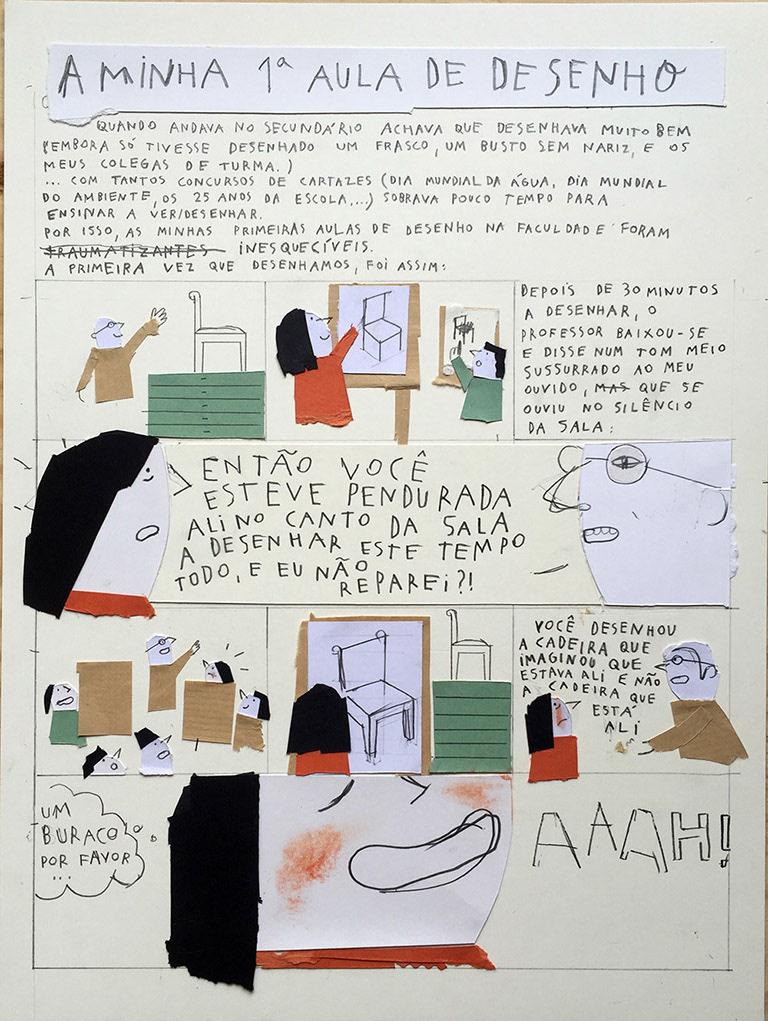 A MINHA 1ª AULA DE DESENHO
QUANDO ANDAVA NO SECUNDÁRIO ACHAVA QUE DESENHAVA MUITO BEM
(EMBORA SÓ TIVESSE DESENHADO UM FRASCO, UM BUSTO SEM NARIZ, E OS
MEUS COLEGAS DE TURMA.)
... COM TANTOS CONCURSOS DE CARTAZES (DIA MUNDIAL DA ÁGUA, DIA MUNDIAL
DO AMBIENTE, OS 25 ANOS DA ESCOLA,...) SOBRAVA POUCO TEMPO PARA
ENSINAR A VER/DESENHAR.
POR ISSO, AS MINHAS PRIMEIRAS AULAS DE DESENHO NA FACULDADE FORAM
TRAUMATIZANTES INESQUECÍVEIS.
A PRIMEIRA VEZ QUE DESENHAMOS, FOI ASSIM:
DEPOIS DE 30 MINUTOS
A DESENHAR, O
PROFESSOR BAIXOU-SE
E DISSE NUM TOM MEIO
SUSSURRADO AO MEU
OUVIDO, MAS QUE SE
OUVIU NO SILÊNCIO
DA SALA:
ENTÃO VOCÊ
ESTEVE PENDURADA
ALI NO CANTO DA SALA
A DESENHAR ESTE TEMPO
TODO, E EU NÃO
REPAREI?!
VOCÊ DESENHOU
A CADEIRA QUE
IMAGINOU QUE
ESTAVA ALI E NÃO
A CADEIRA QUE
ESTÁ
ALI
UM
BURACO
POR FAVOR
...
AAAH!